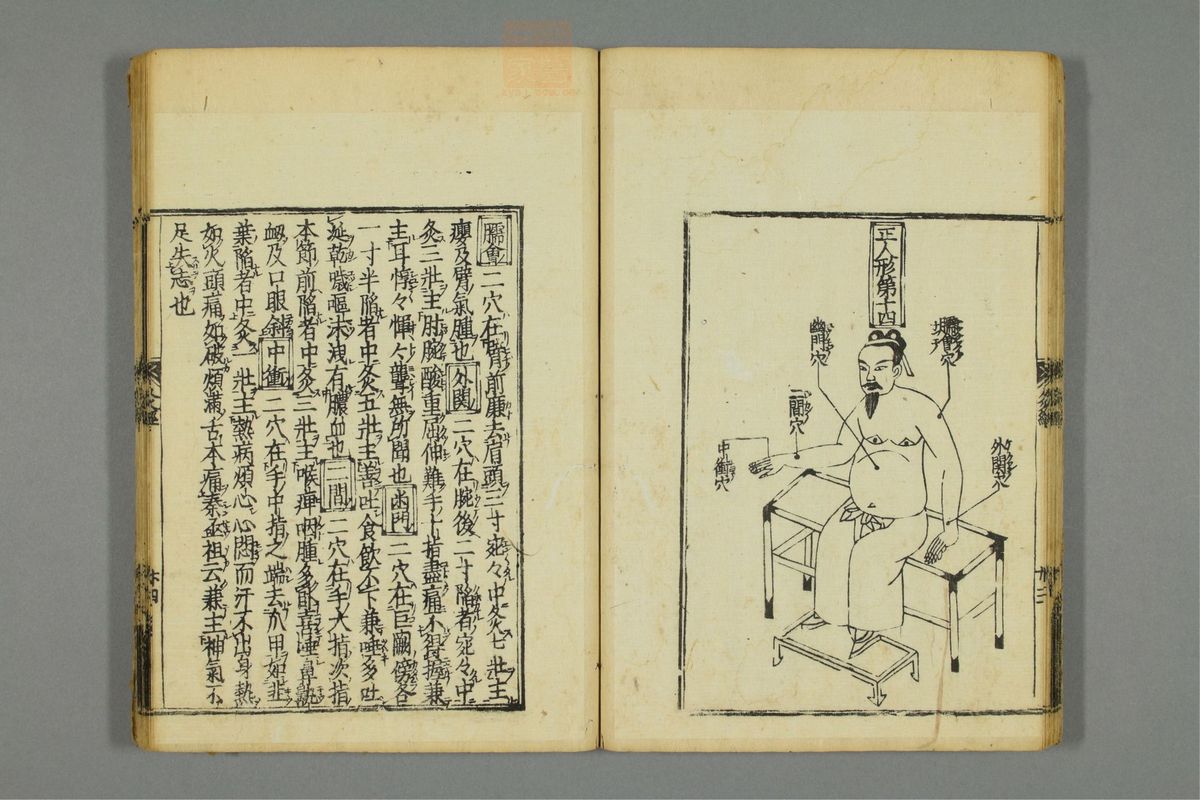 正人形第十四
臑會穴
幽門穴
二間穴
中衝穴
外関穴
臑會二穴在臂前廉去肩頭三寸宛々中灸七壯主
癭及臂氣腫也外関二穴在腕後二寸陷者宛々中
灸三壯主肘腕酸重屈伸難手十指盡痛不得握兼
主耳惇々惲々聾無所聞也幽門二穴在巨闕傍各
一寸半陷者中灸五壯主善吐食飲不下兼唾多吐
涎乾噦嘔沫洩有膿血也二間二穴在手大指次指
本節前陷者中灸三壯主喉痺咽腫多卧喜唾鼻鼽
衂及口眼斜中衝二穴在手中指之端去爪甲如韭
葉陷者中灸一壯主熱病煩心心悶而汗不出身熱
如火頭痛如破煩滿舌本痛秦丞祖云兼主神氣不
足失志也